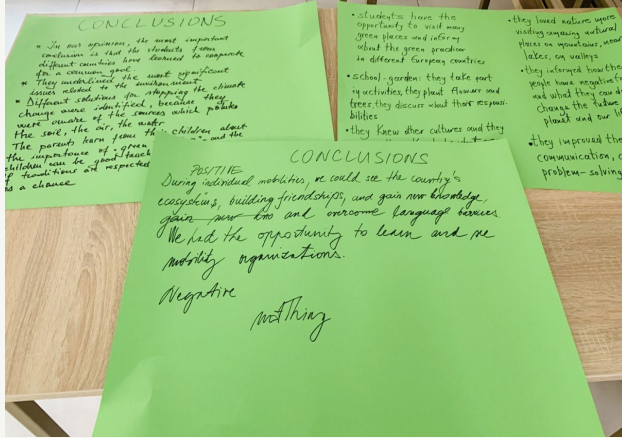 CONCLUSIONS
* In our opinion, the most important
conclusion is that the students from
different countries have learned to cooperate
for a common goal.
* They underlined the most significant
issues related to the environment
* Different solutions for stopping the climate
change were identified, because they
were aware of the sources which pollute
the soil, the air, the water
The parents learn from their children about
the importance of "green and the
children can be good teach
if traditions are respected
as a chance
• students have the
opportunity to visit many
green places and inform
about the green practices
in different European countries
• school-garden: they take part
in activities, they plant flowers and
trees, they discuss about their responsi-
bilities
• they knew other cultures and they
• they loved nature more
visiting amazing natural
places on mountains, near
lakes, on valleys
• they informed how the
people have negative
and what they can d
change the future
planet and our li
• they improved the
communication, c
problem-solving
CONCLUSIONS
POSITIVE
During individual mobilities, we could see the country's
ecosystems, building friendships, and gain new knowledge,
gain new kno and overcome language barriers
We had the opportunity to learn and me
mobility organizations.
Negative
notThing